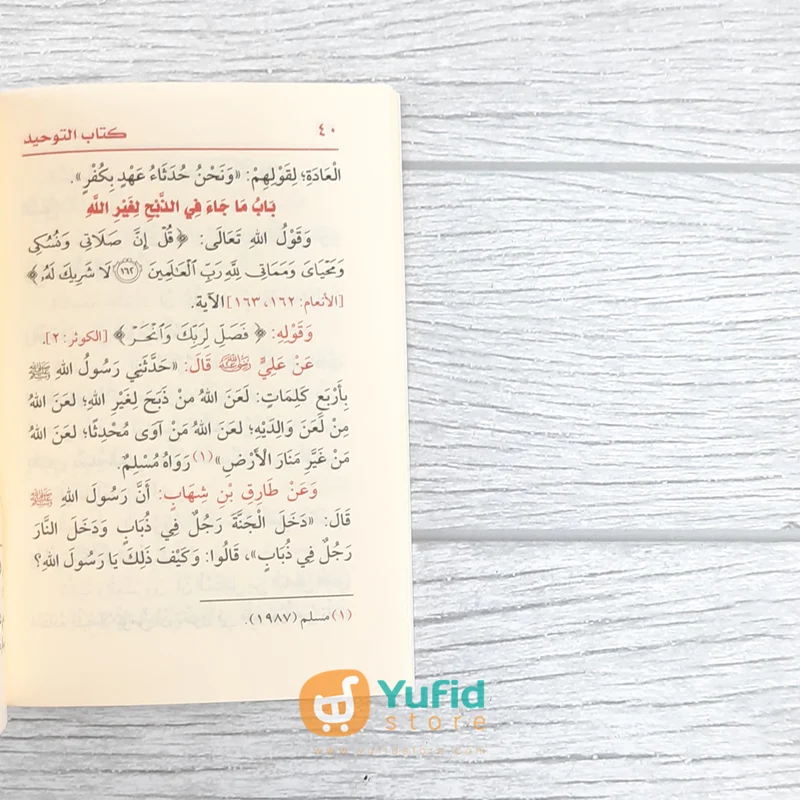 ٤٠ كتاب التوحيد
الْعَادَةِ؛ لِقَوْلِهِمْ: «وَنَحْنُ حُدَثَاءُ عَهْدٍ بِكُفْرٍ».
بَابُ مَا جَاءَ فِي الذَّبْحِ لِغَيْرِ اللَّهِ
وَقَوْلُ اللهِ تَعَالَى: ﴿قُلْ إِنَّ صَلَاتِى وَنُسُكِى
وَمَحْيَاىَ وَمَمَاتِى لِلَّهِ رَبِّ ٱلْعَـٰلَمِينَ ١٦٢ لَا شَرِيكَ لَهُۥ﴾
[الأنعام: ١٦٢، ١٦٣] الآية.
وَقَوْلِهِ: ﴿فَصَلِّ لِرَبِّكَ وَٱنْحَرْ﴾ [الكوثر: ٢].
عَنْ عَلِيٍّ رضي الله عنه قَالَ: «حَدَّثَنِي رَسُولُ اللهِ ﷺ
بِأَرْبَعِ كَلِمَاتٍ: لَعَنَ اللهُ مَنْ ذَبَحَ لِغَيْرِ اللهِ؛ لَعَنَ اللهُ
مِنْ لَعَنَ وَالِدَيْهِ؛ لَعَنَ اللهُ مَنْ آوَى مُحْدِثًا؛ لَعَنَ اللهُ
مَنْ غَيَّرَ مَنَارَ الْأَرْضِ»(١) رَوَاهُ مُسْلِمٌ.
وَعَنْ طَارِقِ بْنِ شِهَابٍ: أَنَّ رَسُولَ اللهِ ﷺ
قَالَ: «دَخَلَ الْجَنَّةَ رَجُلٌ فِي ذُبَابٍ وَدَخَلَ النَّارَ
رَجُلٌ فِي ذُبَابٍ»، قَالُوا: وَكَيْفَ ذَلِكَ يَا رَسُولَ اللهِ؟
(١) مسلم (١٩٨٧).
Yufid
store
www.yufidstore.com